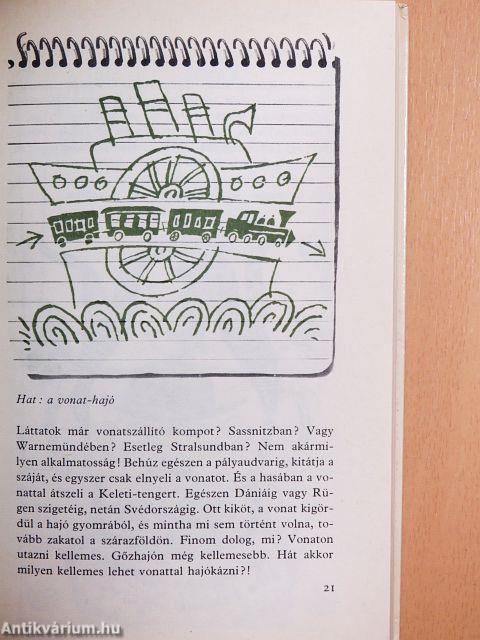 Hat: a vonat-hajó
Láttatok már vonatszállító kompot? Sassnitzban? Vagy
Warnemündében? Esetleg Stralsundban? Nem akármi-
lyen alkalmatosság! Behúz egészen a pályaudvarig, kitátja a
száját, és egyszer csak elnyeli a vonatot. És a hasában a vo-
nattal átszeli a Keleti-tengert. Egészen Dániáig vagy Rü-
gen szigetéig, netán Svédországig. Ott kiköt, a vonat kigör-
dül a hajó gyomrából, és mintha mi sem történt volna, to-
vább zakatol a szárazföldön. Finom dolog, mi? Vonaton
utazni kellemes. Gőzhajón még kellemesebb. Hát akkor
milyen kellemes lehet vonattal hajókázni?!
21
Antikvárium.hu